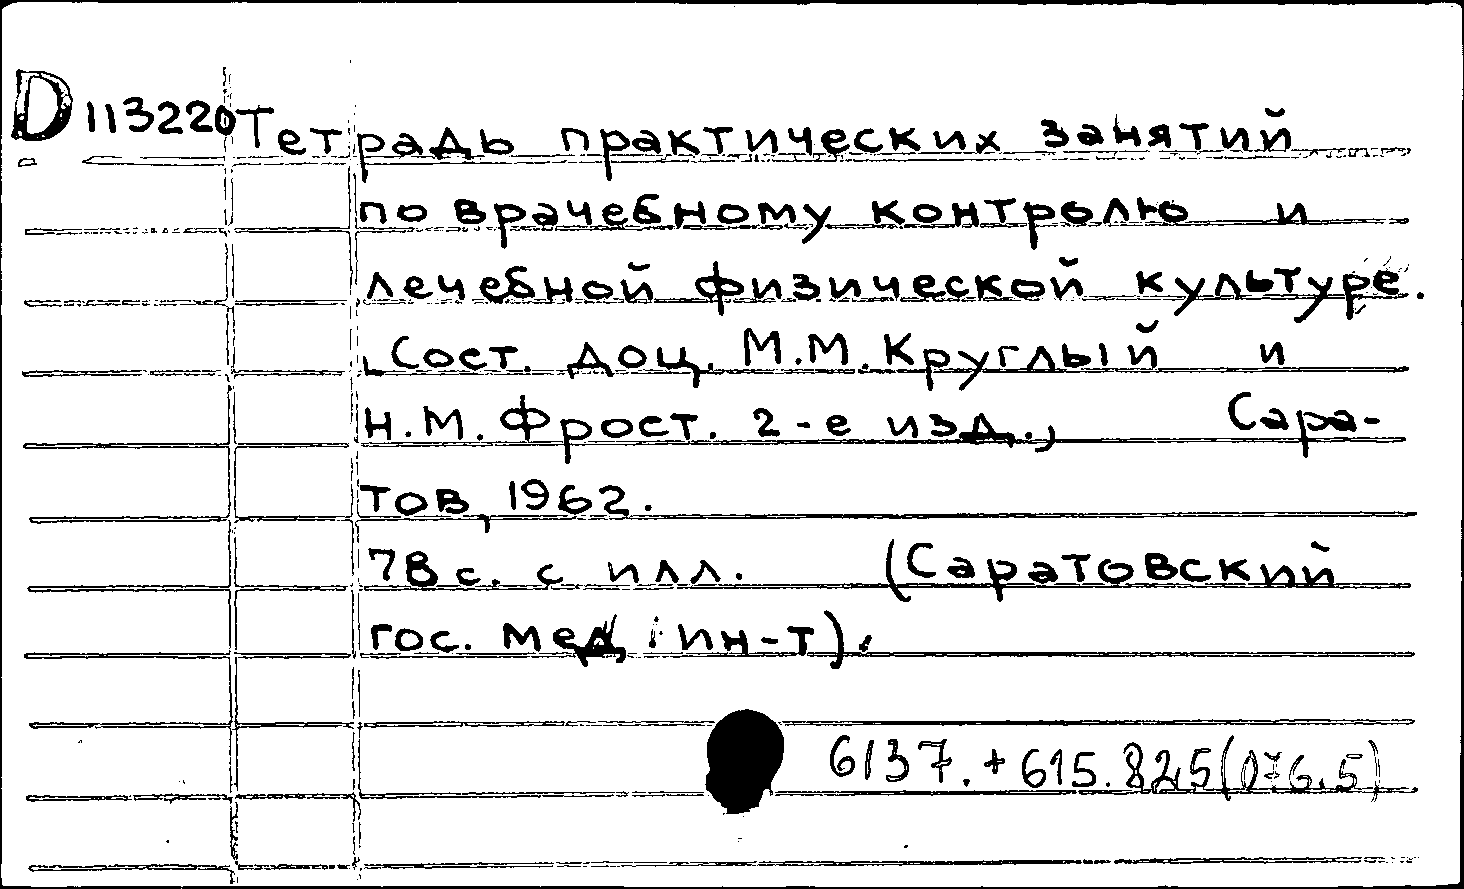 D 113220 Тетрадь практических занятий
по врачебному контролю и
лечебной физической культуре.
Сост. доц. М.М. Круглый и
Н.М. Фрост. 2-е изд., Сара-
тов, 1962.
78 с. с илл. (Саратовский
гос. мед. ин-т).
6137.+615.825(076.5)